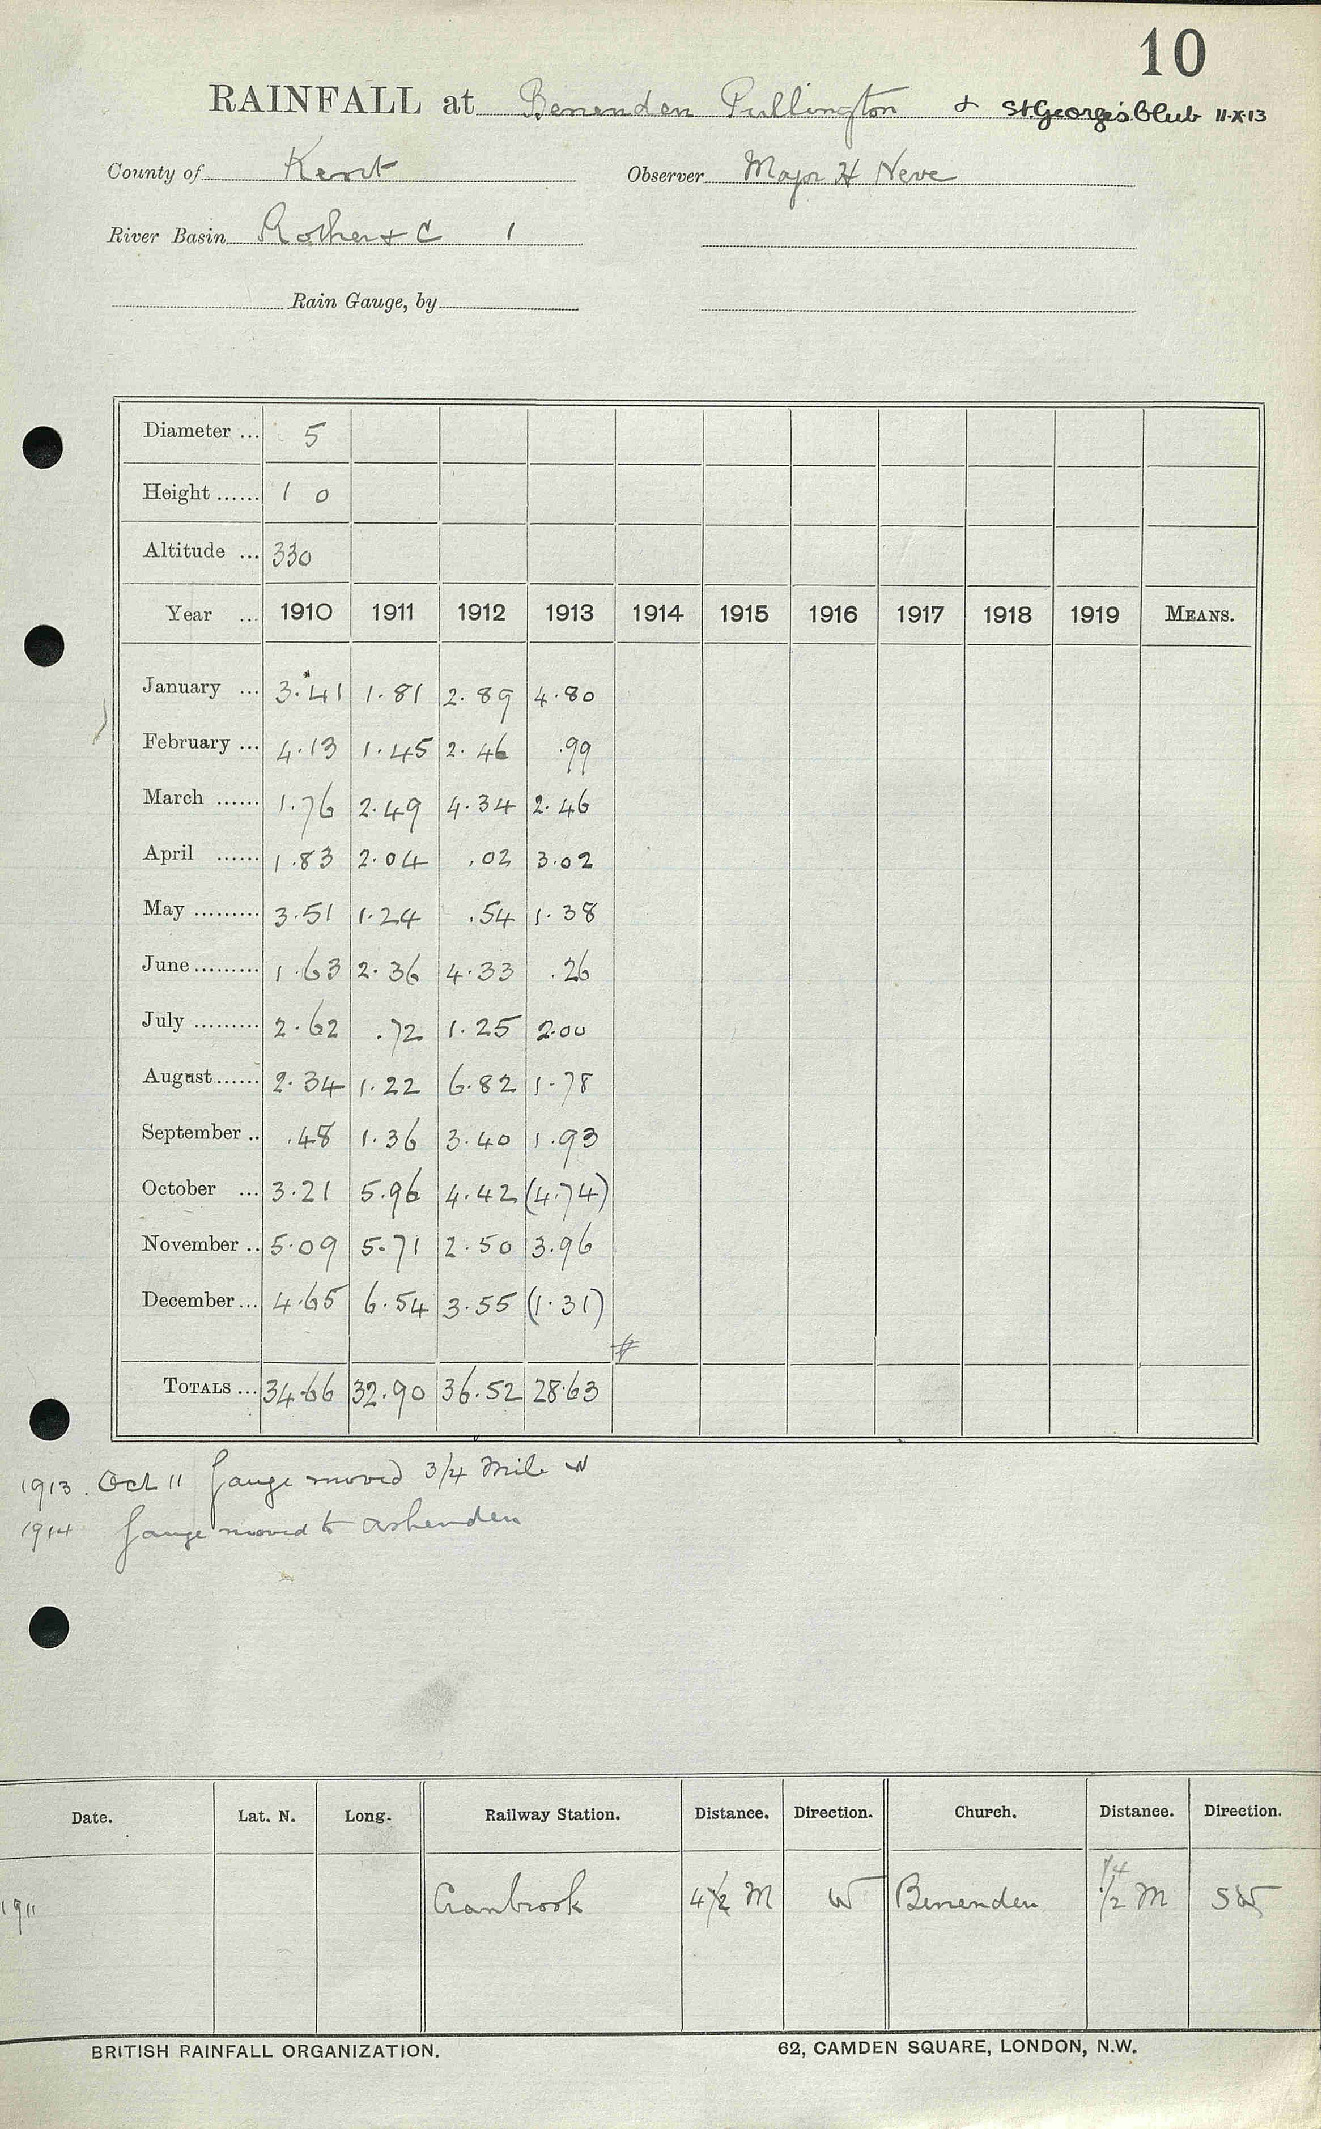 10
RAINFALL at Benenden Pullington & St George's Club 11·X·13
County of Kent Observer Major H Neve
River Basin Rother &C 1
Rain Gauge, by
Diameter ... 5
Height ...... 1 0
Altitude ... 330
Year ... 1910 1911 1912 1913 1914 1915 1916 1917 1918 1919 MEANS.
January ... 3.41 1.81 2.89 4.80
February ... 4.13 1.45 2.46 .99
March ...... 1.76 2.49 4.34 2.46
April ...... 1.83 2.04 .02 3.02
May ......... 3.51 1.24 .54 1.38
June ......... 1.63 2.36 4.33 .26
July ......... 2.62 .72 1.25 2.00
August ...... 2.34 1.22 6.82 1.78
September .. .48 1.36 3.40 1.93
October ... 3.21 5.96 4.42 (4.74)
November .. 5.09 5.71 2.50 3.96
December ... 4.65 6.54 3.55 (1.31)
TOTALS ... 34.66 32.90 36.52 28.63
1913. Oct 11 Gauge moved 3/4 Mile W
1914 Gauge moved to Ashenden
Date. Lat. N. Long. Railway Station. Distance. Direction. Church. Distance. Direction.
1/4
1911 Cranbrook 4 1/2 M W Benenden 1/2 M SW
BRITISH RAINFALL ORGANIZATION. 62, CAMDEN SQUARE, LONDON, N.W.